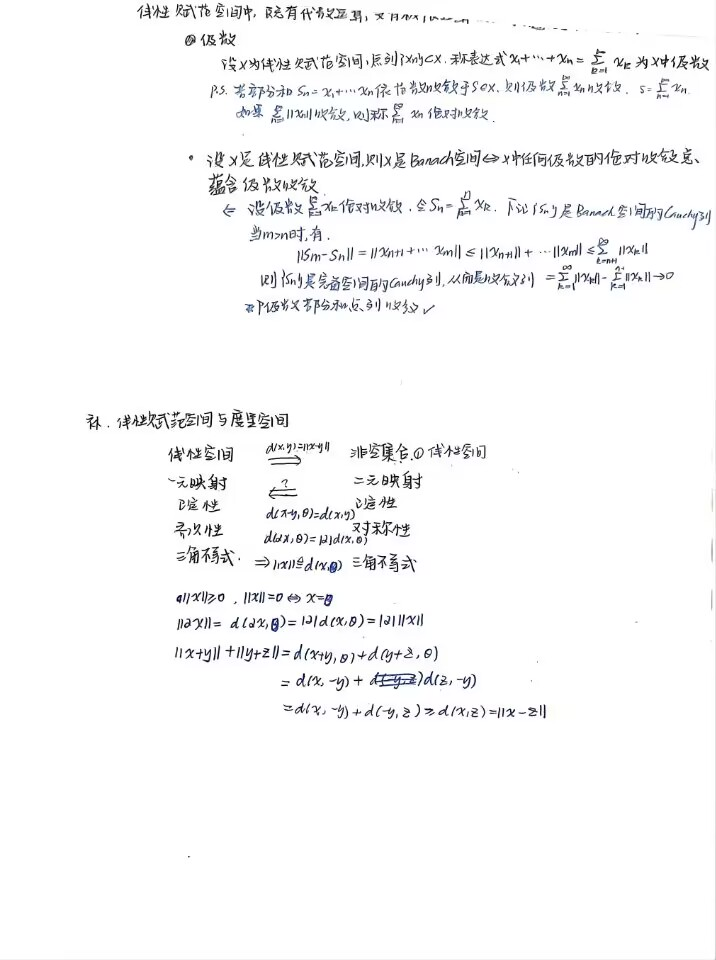 线性赋范空间中,既有代数运算,又有极限
② 级数
设X为线性赋范空间,点列{xn}⊂X. 称表达式 x₁+⋯+xn = Σ_{k=1} xk 为X中级数
P.S. 若部分和 Sn=x₁+⋯xn 依范数收敛于S∈X. 则级数 Σ_{n=1}^∞ xn收敛. S=Σ_{n=1}^∞ xn.
如果 Σ_{n=1}^∞ ||xn||收敛,则称 Σ_{n=1}^∞ xn 绝对收敛.
• 设X是线性赋范空间,则X是Banach空间⇔X中任何级数的绝对收敛
蕴含级数收敛
⇐ 设级数 Σ_{k=1}^∞ xk 绝对收敛. 令Sn=Σ_{k=1}^n xk. 下证{Sn}是Banach空间的Cauchy列
当m>n时,有.
||Sm-Sn|| = ||xn+1+⋯xm|| ≤ ||xn+1||+⋯||xm|| ≤ Σ_{k=n+1}^∞ ||xk||
则{Sn}是完备空间的Cauchy列,从而是收敛列 = Σ_{k=1}^∞ ||xk|| - Σ_{k=1}^n ||xk|| → 0
即级数部分和点列收敛 ✓
补. 线性赋范空间与度量空间
线性空间 d(x,y)=||x-y|| ⟹ 非空集合.① 线性空间
一元映射 ? ⟸ 二元映射
正定性 d(x-y,θ)=d(x,y) 正定性
齐次性 d(αx,θ)=|α|d(x,θ) 对称性
三角不等式. ⇒ ||x||≜d(x,θ) 三角不等式
||x||≥0 , ||x||=0 ⇔ x=θ
||αx|| = d(αx,θ) = |α|d(x,θ) = |α| ||x||
||x+y||+||y+z|| = d(x+y,θ)+d(y+z,θ)
= d(x,-y) + d(z,-y)
= d(x,-y) + d(-y,z) ≥ d(x,z) = ||x-z||